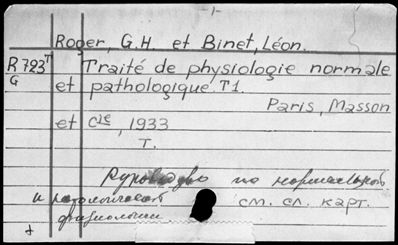 - 1 -
Roger, G.H. et Binet, Léon.
R 723ᵀ Traité de physiologie normale
G et pathologique. T1.
Paris, Masson
et Cie, 1933
т.
Руководство по нормальной
и патологической см. сл. карт.
физиологии